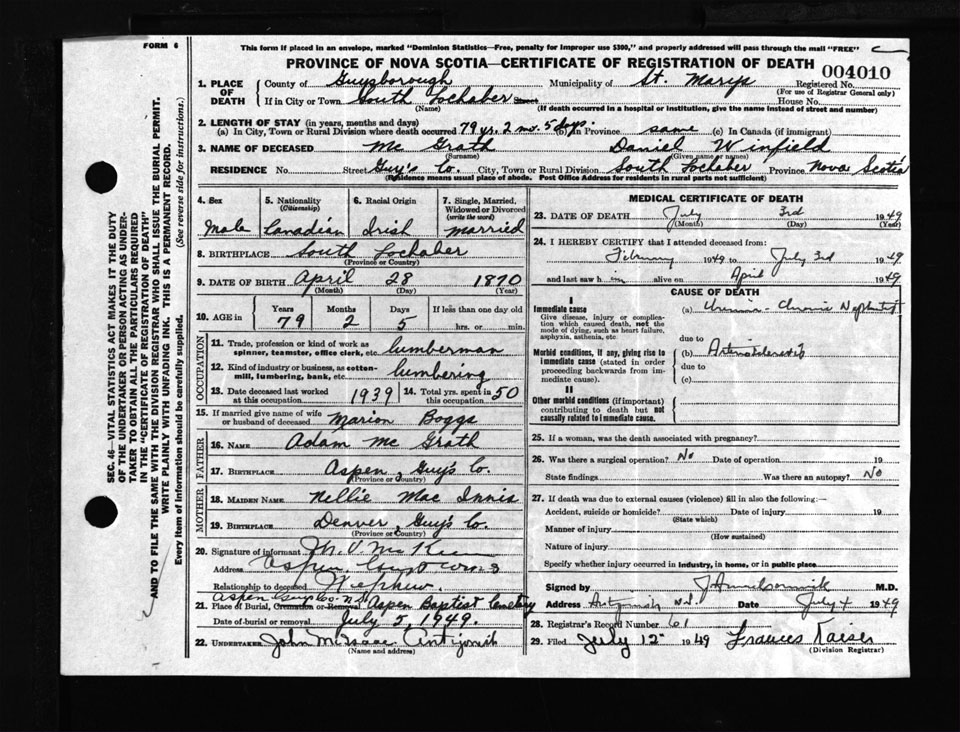 FORM 6
This form if placed in an envelope, marked "Dominion Statistics—Free, penalty for improper use $300," and properly addressed will pass through the mail "FREE"
PROVINCE OF NOVA SCOTIA—CERTIFICATE OF REGISTRATION OF DEATH
004010
1. PLACE OF DEATH
County of Guysborough Municipality of St. Marys Registered No.
(For use of Registrar General only)
If in City or Town South Lochaber Street House No.
(Name) (If death occurred in a hospital or institution, give the name instead of street and number)
2. LENGTH OF STAY (in years, months and days)
(a) In City, Town or Rural Division where death occurred 79 yr. 2 mo. 5 days. (b) In Province same (c) In Canada (if immigrant)
3. NAME OF DECEASED Mc Grath Daniel Winfield
(Surname) (Given name or names)
RESIDENCE No. Street Guy's Co. City, Town or Rural Division South Lochaber Province Nova Scotia
(Residence means usual place of abode. Post Office Address for residents in rural parts not sufficient)
4. Sex 5. Nationality (Citizenship) 6. Racial Origin 7. Single, Married, Widowed or Divorced (write the word)
Male Canadian Irish married
8. BIRTHPLACE South Lochaber
(Province or Country)
9. DATE OF BIRTH April 28 1870
(Month) (Day) (Year)
10. AGE in Years Months Days If less than one day old
79 2 5 hrs. or min.
OCCUPATION
11. Trade, profession or kind of work as spinner, teamster, office clerk, etc. lumberman
12. Kind of industry or business, as cotton-mill, lumbering, bank, etc. lumbering
13. Date deceased last worked at this occupation 1939 14. Total yrs. spent in this occupation 50
15. If married give name of wife or husband of deceased Marion Boggs
FATHER
16. NAME Adam Mc Grath
17. BIRTHPLACE Aspen, Guy's Co.
(Province or Country)
MOTHER
18. MAIDEN NAME Nellie Mac Innis
19. BIRTHPLACE Denver, Guy's Co.
(Province or Country)
20. Signature of informant
Address Aspen
Relationship to deceased Nephew.
Aspen Guys Co. N.S.
21. Place of Burial, Cremation or Removal Aspen Baptist Cemetery
Date of burial or removal July 5, 1949.
22. UNDERTAKER John McIsaac Antigonish
(Name and address)
MEDICAL CERTIFICATE OF DEATH
23. DATE OF DEATH July 3rd 1949
(Month) (Day) (Year)
24. I HEREBY CERTIFY that I attended deceased from:
February 1949 to July 3rd 1949
and last saw h im alive on April 1949
CAUSE OF DEATH
I
Immediate cause
Give disease, injury or complication which caused death, not the mode of dying, such as heart failure, asphyxia, asthenia, etc.
(a) Chronic
due to
Morbid conditions, if any, giving rise to immediate cause (stated in order proceeding backwards from immediate cause).
(b)
due to
(c)
II
Other morbid conditions (if important) contributing to death but not causally related to immediate cause.
25. If a woman, was the death associated with pregnancy?
26. Was there a surgical operation? No Date of operation 19
State findings Was there an autopsy? No
27. If death was due to external causes (violence) fill in also the following:—
Accident, suicide or homicide? Date of injury 19
(State which)
Manner of injury
(How sustained)
Nature of injury
Specify whether injury occurred in industry, in home, or in public place
Signed by M.D.
Address Antigonish N.S. Date July 4 1949
28. Registrar's Record Number 61
29. Filed July 12 1949 Frances Kaiser
(Division Registrar)
SEC. 46—VITAL STATISTICS ACT MAKES IT THE DUTY
OF THE UNDERTAKER OR PERSON ACTING AS UNDER-
TAKER TO OBTAIN ALL THE PARTICULARS REQUIRED
IN THE "CERTIFICATE OF REGISTRATION OF DEATH"
AND TO FILE THE SAME WITH THE DIVISION REGISTRAR WHO SHALL ISSUE THE BURIAL PERMIT.
WRITE PLAINLY WITH UNFADING INK. THIS IS A PERMANENT RECORD.
Every item of information should be carefully supplied. (See reverse side for instructions.)